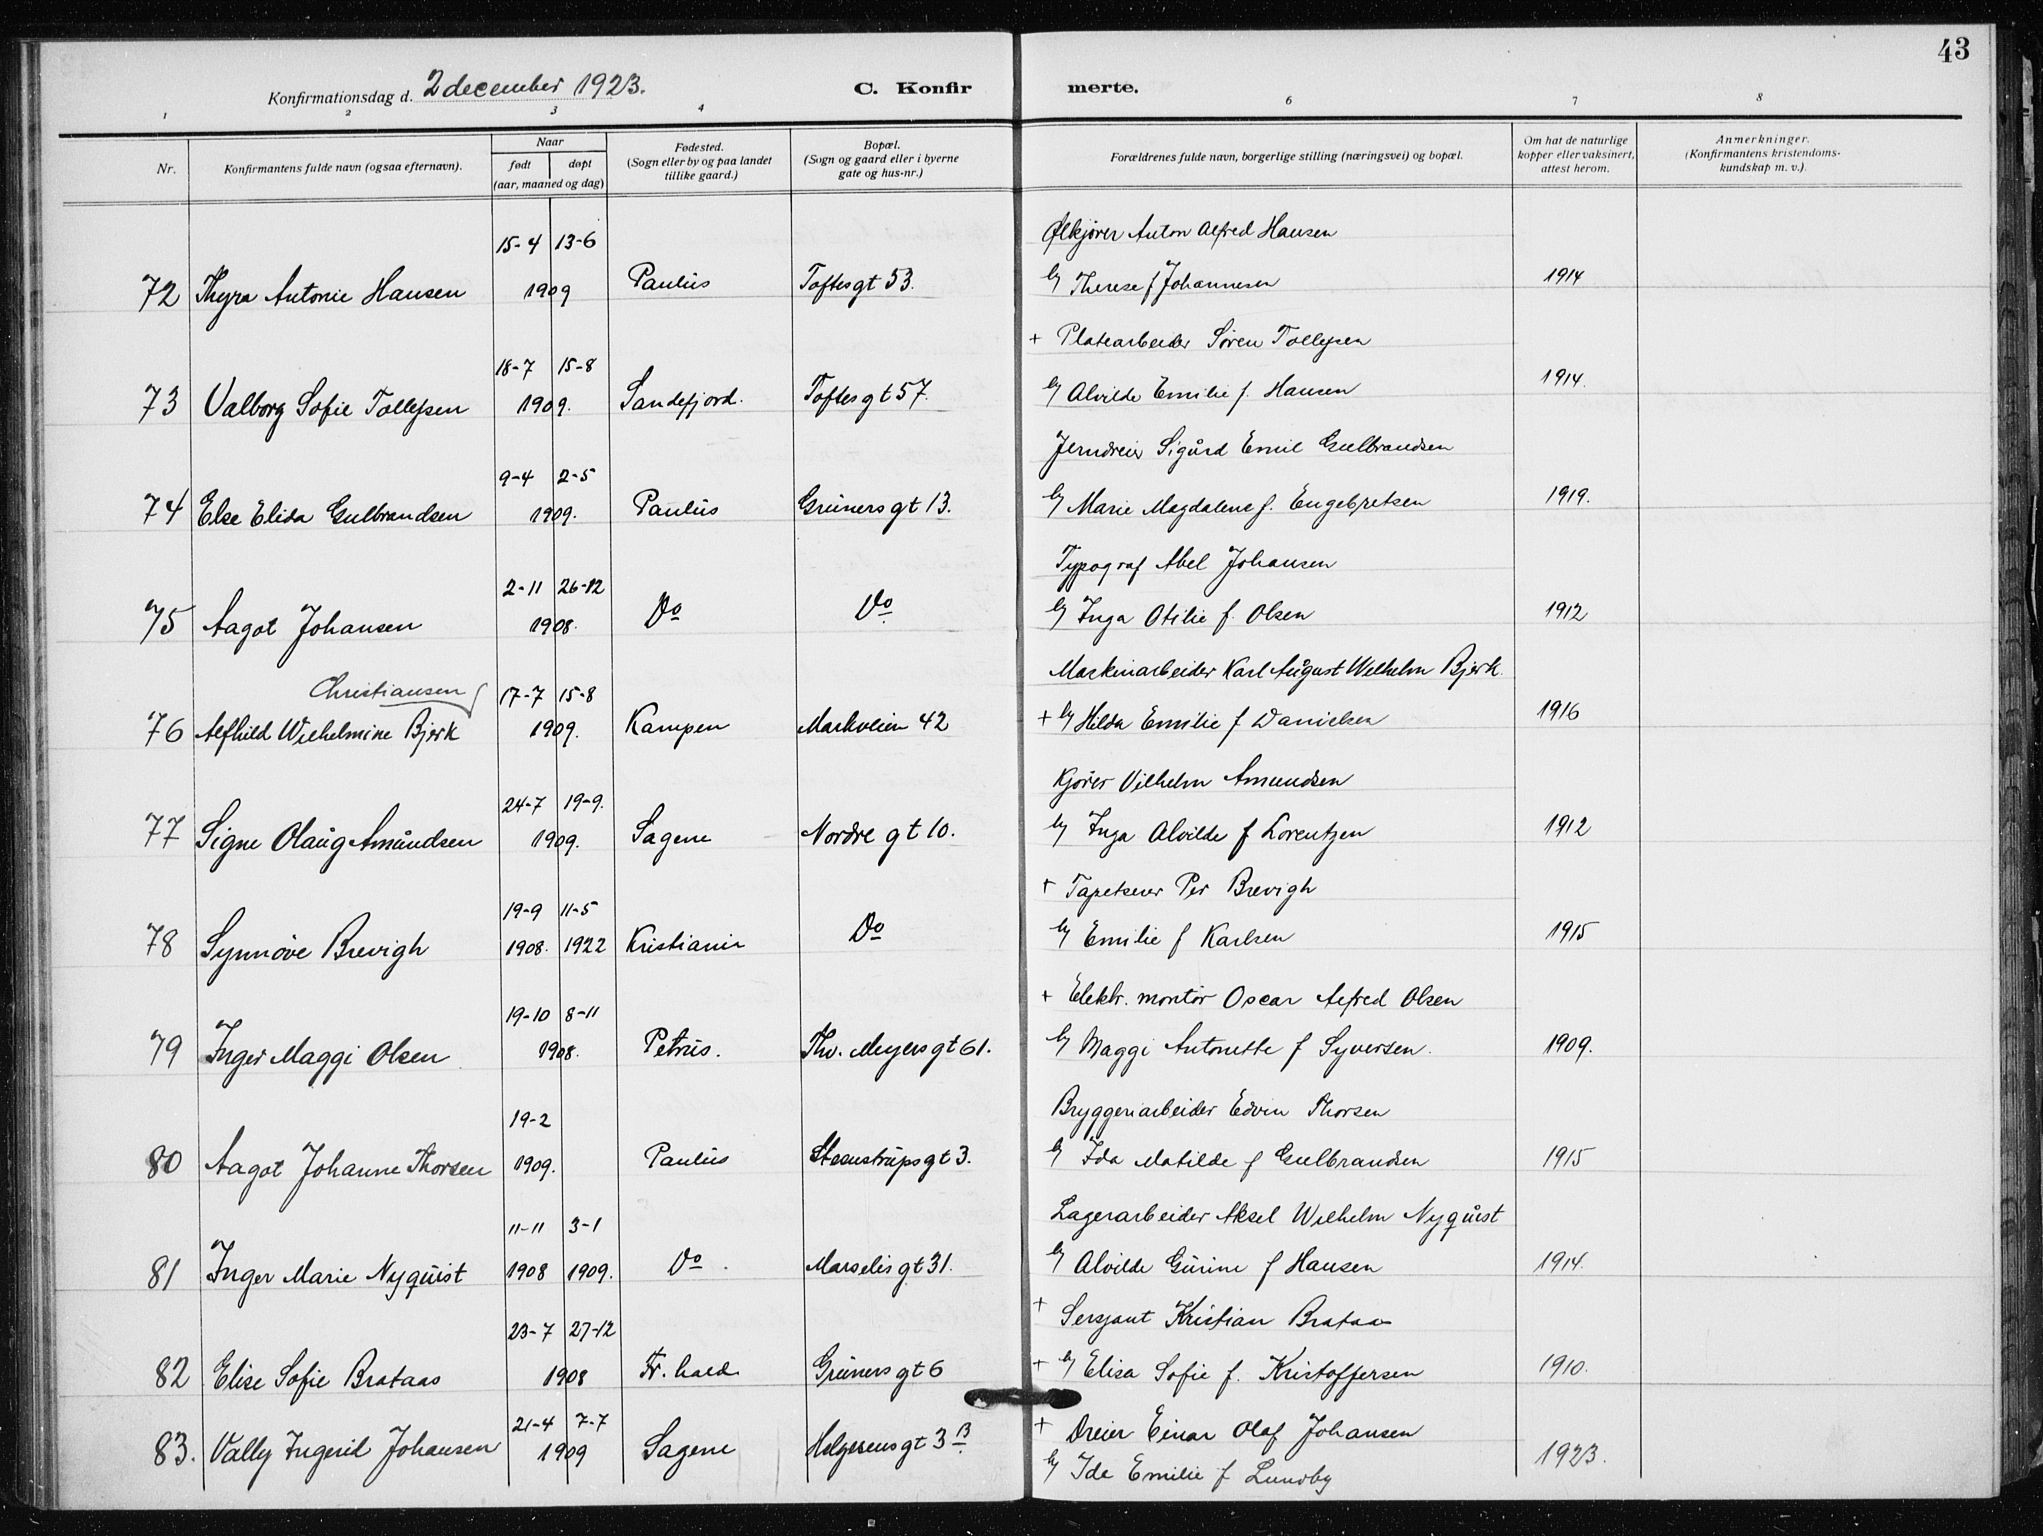 43
Konfirmationsdag d. 2 december 1923. C. Konfir merte.
1 2 3 4 6 7 8
Nr.
Konfirmantens fulde navn (ogsaa efternavn).
Naar
født døpt
(aar, maaned og dag)
Fødested.
(Sogn eller by og paa landet
tillike gaard.)
Bopæl.
(Sogn og gaard eller i byerne
gate og hus-nr.)
Forældrenes fulde navn, borgerlige stilling (næringsvei) og bopæl.
Om hat de naturlige
kopper eller vaksinert,
attest herom.
Anmerkninger.
(Konfirmantens kristendoms-
kundskap m. v.).
15-4 13-6 Ølkjører Anton Alfred Hansen
72 Thyra Antonie Hansen 1909 Paulus Toftesgt 53. Therese f Johannesen 1914
18-7 15-8 + Platearbeider Søren Tollefsen
73 Valborg Sofie Tollefsen 1909. Sandefjord. Toftesgt 57. Alvilde Emilie f. Hansen 1914.
9-4 2-5 Jerndreier Sigurd Emil Gulbrandsen
74 Else Elida Gulbrandsen 1909. Paulus Grünersgt 13. Marie Magdalene f. Engebretsen 1919.
2-11 26-12 Typograf Abel Johansen
75 Aagot Johansen 1908. Do Do Inga Otilie f. Olsen 1912
Christiansen 17-7 15-8 Maskinarbeider Karl August Wilhelm Bjerk.
76 Alfhild Wilhelmine Bjerk 1909. Kampen Markveien 42 + Hilda Emilie f Danielsen 1916
24-7 19-9. Kjører Vilhelm Amundsen
77 Signe Olaug Amundsen 1909. Sagene Nordre gt 10. Inga Alvilde f Lorentzen 1912
19-9 11-5 + Tapetserer Per Brevigh
78 Synnøve Brevigh 1908. 1922 Kristiania Do Emilie f Karlsen 1915
19-10 8-11 + Elektr. montør Oscar Alfred Olsen
79 Inger Maggi Olsen 1908. Petrus. Thv. Meyersgt 61. Maggi Antonette f Syversen. 1909.
19-2 Bryggeriarbeider Edvin Thorsen
80 Aagot Johanne Thorsen 1909. Paulus Steenstrupsgt 3. Ida Matilde f Gulbrandsen 1915
11-11 3-1 Lagerarbeider Aksel Wilhelm Nyquist
81 Inger Marie Nyquist 1908 1909. Do. Marselisgt 31. Alvilde Gurine f Hansen 1914.
23-7 27-12 + Sersjant Kristian Brataas
82 Elise Sofie Brataas 1908 Fr. hald Grünersgt 6 + Elisa Sofie f. Kristoffersen 1910.
21-4 7-7 + Dreier Einar Olaf Johansen
83. Vally Ingerid Johansen 1909 Sagene Helgesensgt 3 B. 1923.
Ida Emilie f Lundby